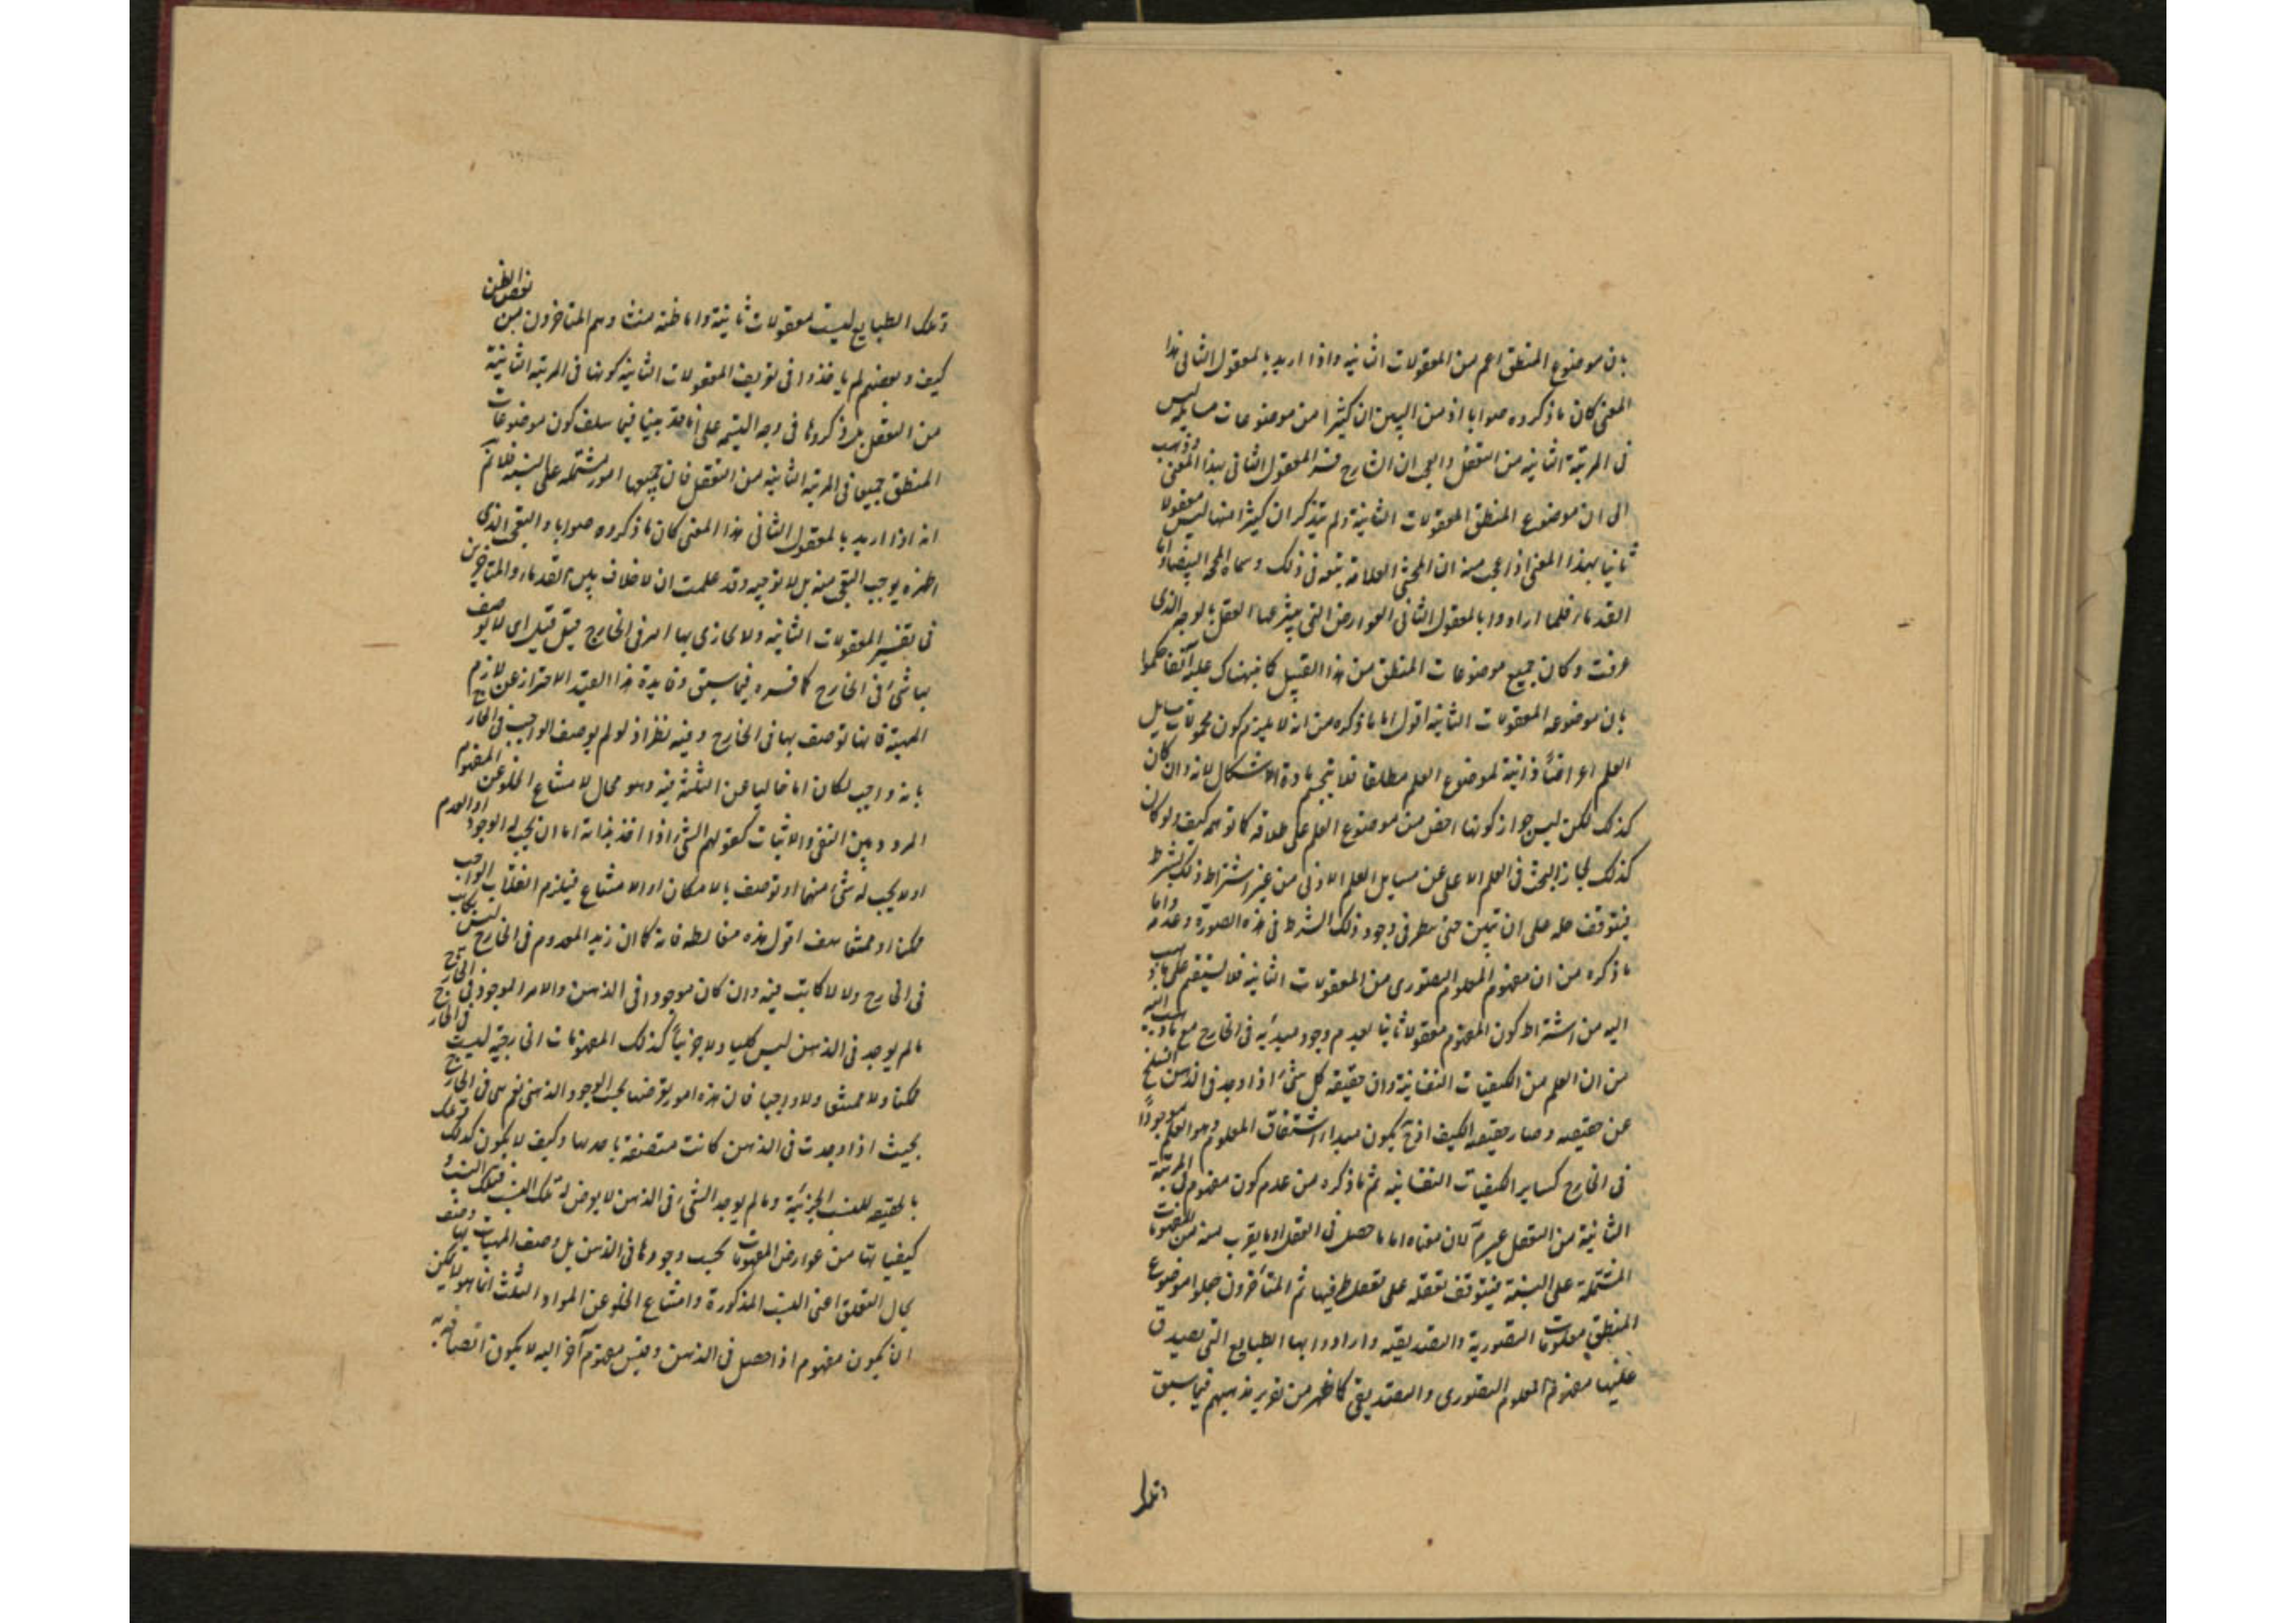 بان موضوع المنطق اعم من المعقولات الثانية واذا اريد بالمعقول الثانى هذا
المعنى كان ما ذكروه صوابا اذ من البين ان كثيرا من موضوعات مسايله ليس
فى المرتبة الثانية من التعقل والعجب ان الشارح فسر المعقول الثانى بهذا المعنى وذهب
الى ان موضوع المنطق المعقولات الثانية ولم يتذكر ان كثيرا منها ليس معقولا
ثانيا بهذا المعنى اذ اعجب منه ان المحشى العلامة تبعه فى ذلك وسماه الحق البيضا واما
القدماء فلما ارادوا بالمعقول الثانى العوارض التى يعثر عليها العقل بالوجه الذى
عرفت وكان جميع موضوعات المنطق من هذا القبيل كما نبهناك عليه آنفا حكموا
بان موضوعه المعقولات الثانية اقول اما ما ذكره من انه لا يلزم كون محمولات مسايل
العلم اعراضاً ذاتية لموضوع العلم مطلقا فلا ينحسم مادة الاشكال لانه وان كان
كذلك لكن ليس جواز كونها اخص من موضوع العلم على اطلاقه كما توهم كيف ولو كان
كذلك لجاز البحث فى العلم الاعلى عن مسايل العلم الادنى من غير اشتراط ذلك بشرط
فيتوقف حله على ان تبين حتى ينظر فى وجود ذلك الشرط فى هذه الصورة وعدمه واما
ما ذكره من ان مفهوم المعلوم التصورى من المعقولات الثانية فلا يستقيم على ما ذهب
اليه من اشتراط كون المفهوم معقولا ثانيا بعدم وجود مبدئه فى الخارج مع ما ذهب اليه
من ان العلم من الكيفيات النفسانية وان حقيقة كل شئ اذا وجد فى الذهن انسلخ
عن حقيقته وصار حقيقته الكيف اذ ح يكون مبداء اشتقاق المعلوم وهو العلم موجوداً
فى الخارج كساير الكيفيات النفسانية ثم ما ذكره من عدم كون مفهومه فى المرتبة
الثانية من التعقل غير مسلم لان معناه اما ما حصل فى العقل او ما يقرب منه من المفهومات
المشتملة على النسبة فيتوقف تعقله على تعقل طرفيها ثم المتأخرون جعلوا موضوع
المنطق معلومات التصورية والتصديقية وارادوا بها الطبايع التى يصدق
عليها مفهوم المعلوم التصورى والتصديقى كما ظهر من تقرير مذهبهم فيما سبق
وتلك
وتلك الطبايع ليست معقولات ثانية واما ظنه منشا وهم المتاخرون من بعض الظن
كيف و بعضهم لم ياخذوا فى تعريف المعقولات الثانية كونها فى المرتبة الثانية
من التعقل بل ذكروها فى وجه التسمية على أنا قد بينا فيما سلف كون موضوعات
المنطق جميعا فى المرتبة الثانية من التعقل فان جميعها امور مشتملة على النسبة فلا تم
انه اذا اريد بالمعقول الثانى هذا المعنى كان ما ذكروه صوابا والتعجب الذى
اظهره يوجب التعجب منه بل لا توجيه وقد علمت ان لا خلاف بين القدماء والمتاخرين
فى تفسير المعقولات الثانية ولا يحاذى بها امر فى الخارج قيل قيل اى لا يوصف
بها شئ فى الخارج كما فسره فيما سبق وفايدة هذا القيد الاحتراز عن لازم
المهية فانها توصف بها فى الخارج وفيه نظر اذ لو لم يوصف الواجب فى الخارج
بانه واجب لكان اما خاليا عن الثلثة فيه وهو محال لامتناع الخلو عن المفهوم
المردد بين النفى والاثبات كقولهم الشئ اذا اخذ بذاته اما ان يجب له الوجود او العدم
او لا يجب له شئ منهما او توصف بالامكان او الامتناع فيلزم انقلاب الواجب
ممكنا او ممتنعا هف اقول هذه مغالطة فانه كما ان زيد المعدوم فى الخارج ليس بكاتب
فى الخارج ولا لا كاتب فيه وان كان موجودا فى الذهن والامر الموجود فى الخارج
مالم يوجد فى الذهن ليس كليا ولا جزئياً كذلك المفهومات الخارجية ليست فى الخارج
ممكنا ولا ممتنعا ولا واجبا فان هذه امور يعرضها بحسب الوجود الذهنى نعم هى فى الخارج
بحيث اذا وجدت فى الذهن كانت متصفة باحدها وكيف لا يكون كذلك
بالحقيقة للنسب الجزئية وما لم يوجد الشئ فى الذهن لا يعرض له تلك النسب فتلك النسب و
كيفياتها من عوارض المفهومات بحسب وجودها فى الذهن بل وصف المهيات بها وصف
بحال المتعلق اعنى النسب المذكورة وامتناع الخلو عن المواد الثلث انما هو لا يمكن
ان يكون مفهوم اذا حصل فى الذهن وقيس مفهوم آخر اليه لا يكون اتصافه به